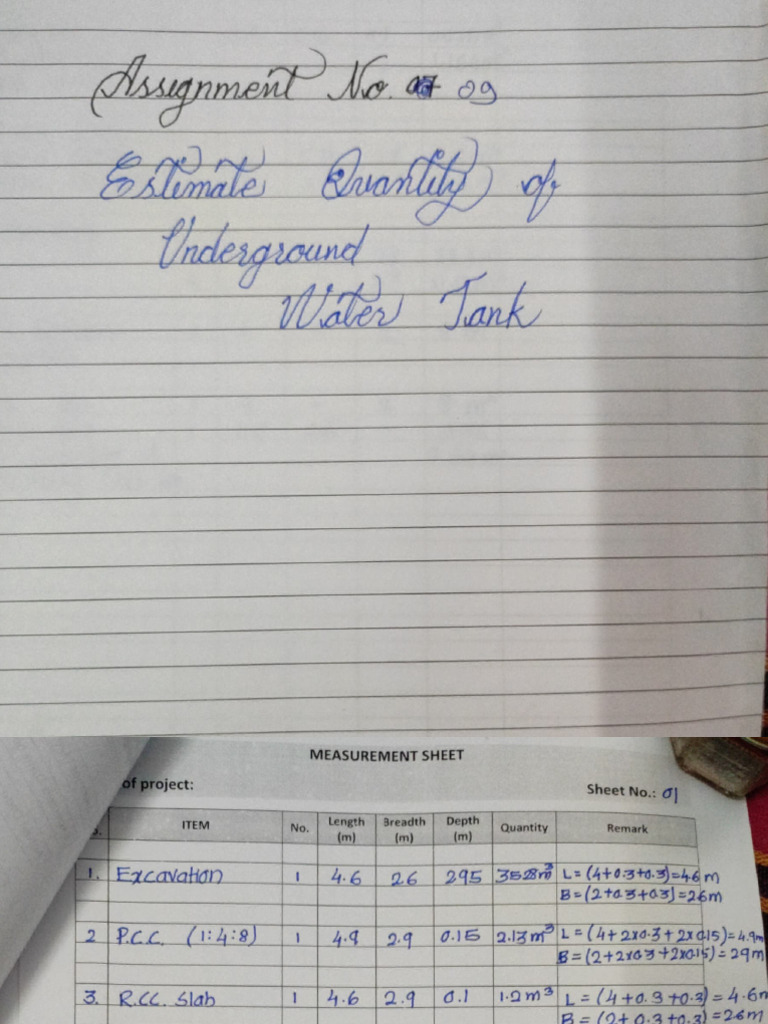 Assignment No. 09
Estimate Quantity of
Underground
Water Tank
MEASUREMENT SHEET
of project:
Sheet No.: 01
ITEM No. Length (m) Breadth (m) Depth (m) Quantity Remark
1. Excavation 1 4.6 2.6 2.95 35.28m³ L = (4+0.3+0.3)=4.6m
B = (2+0.3+0.3)=2.6m
2 P.C.C. (1:4:8) 1 4.9 2.9 0.15 2.13m³ L = (4+2x0.3+2x0.15)=4.9m
B = (2+2x0.3+2x0.15)=2.9m
3. R.C.C. Slab 1 4.6 2.9 0.1 1.2m³ L = (4+0.3+0.3)=4.6m
B = (2+0.3+0.3)=2.6m